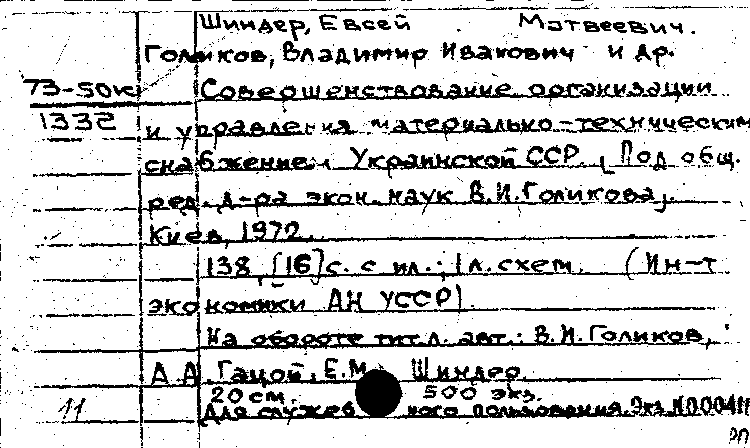 Шиндер, Евсей Матвеевич.
Голиков, Владимир Иванович и др.
73-50к
1332
Совершенствование организации
и управления материально-техническим
снабжением Украинской ССР. [Под общ.
ред. д-ра экон. наук В.И.Голикова].
Киев, 1972.
138, [16] с. с ил.; 1 л. схем. (Ин-т
экономики АН УССР).
На обороте тит. л. авт.: В.И.Голиков,
А.А. Гацой, Е.М. Шиндер.
20 см. 500 экз.
Для служебного пользования. Экз.
11